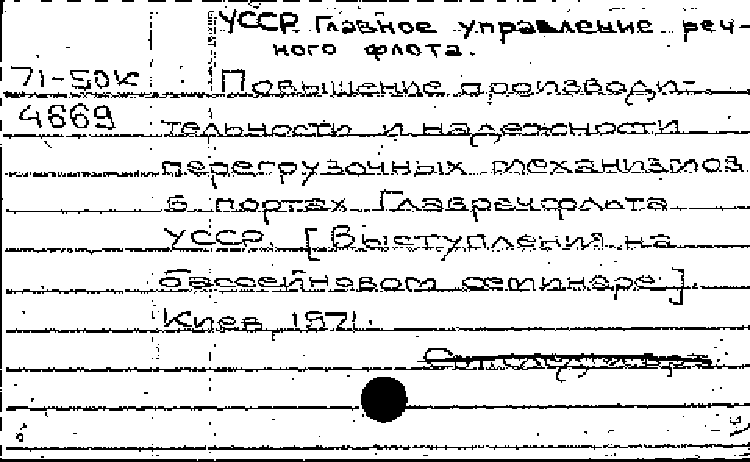 УССР. Главное управление реч-
ного флота.
71-50к Повышение производи-
4669 тельности и надежности
перегрузочных механизмов
в портах Главречфлота
УССР. [Выступления на
бассейновом семинаре].
Киев, 1971.